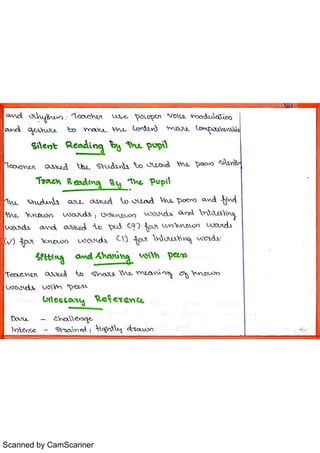 and rhythm. Teacher use proper voice modulation
and gesture to make the content more comprehensible
Silent Reading by The pupil
Teacher asked the students to read the poem silently
Track Reading By The Pupil
The students are asked to read the poem and find
the known words, unknown words and interesting
words and asked to put (?) for unknown words
(✓) for known words (!) for interesting words.
Sitting and sharing with peers
Teacher asked to share the meaning of known
words with peers
Glossary Reference
Dare - challenge
Intense - Strained, tightly drawn
Scanned by CamScanner